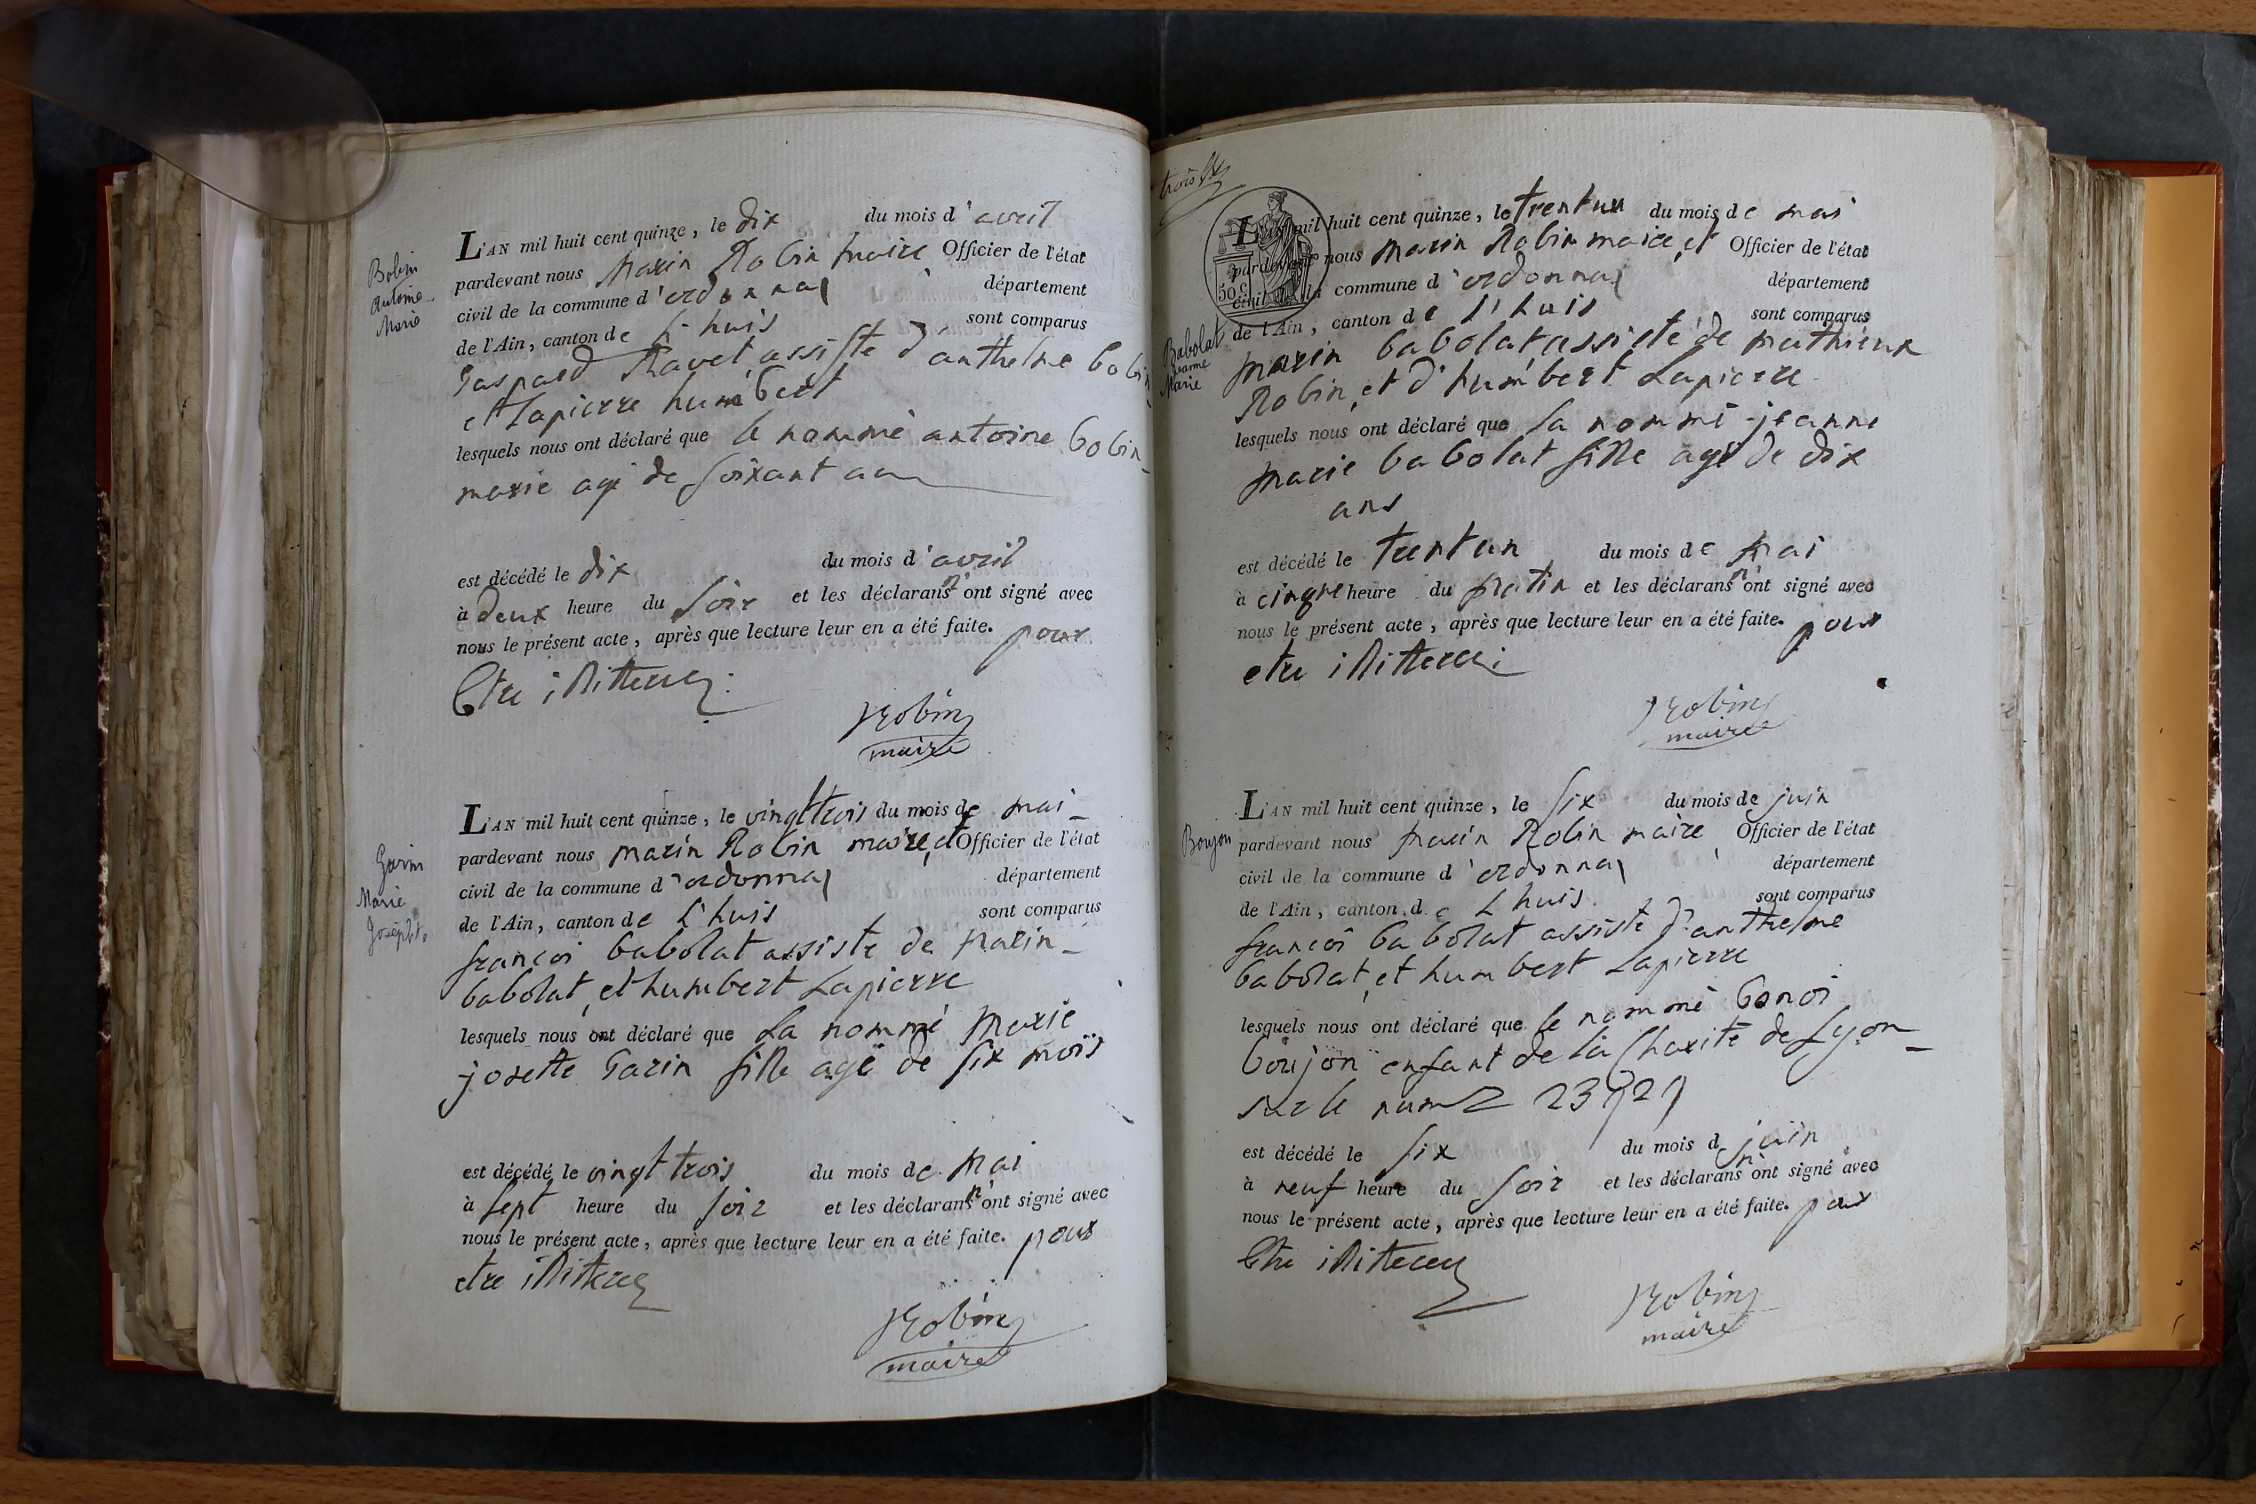 Bobin
antoine
Marie
L'AN mil huit cent quinze, le dix du mois d'avril
pardevant nous marin Robin maire Officier de l'état
civil de la commune d'ordonnas département
de l'Ain, canton de L'huis sont comparus
Gaspard Ravet assisté d'anthelme bobin
et Lapierre humbert
lesquels nous ont déclaré que le nommé antoine bobin
marie agé de soixant an
est décédé le dix du mois d'avril
à deux heure du soir et les déclarans n'ont signé avec
nous le présent acte, après que lecture leur en a été faite. pour
Etre illitteres.
Robin
maire
Garin
Marie
Josephte
L'AN mil huit cent quinze, le vingt trois du mois de mai
pardevant nous marin Robin maire, et Officier de l'état
civil de la commune d'ordonnas département
de l'Ain, canton de L'huis sont comparus
francoi babolat assiste de marin
babolat, et humbert Lapierre
lesquels nous ont déclaré que La nommé marie
josette Garin fille agé de six mois
est décédé le vingt trois du mois de mai
à sept heure du soir et les déclarans n'ont signé avec
nous le présent acte, après que lecture leur en a été faite. pour
etre illiteres
Robin
maire
trois
50 c
Babolat
Jeanne
Marie
L'AN mil huit cent quinze, le trentun du mois de mai
pardevant nous marin Robin maire, et Officier de l'état
civil de la commune d'ordonnas département
de l'Ain, canton de L'huis sont comparus
marin babolat, assisté de mathieux
Robin, et d'humbert Lapierre
lesquels nous ont déclaré que La nommé jeanne
marie babolat fille agé de dix
ans
est décédé le trentun du mois de mai
à cinque heure du matin et les déclarans n'ont signé avec
nous le présent acte, après que lecture leur en a été faite. pour
etre illitteres
Robin
maire
Boujon
L'AN mil huit cent quinze, le six du mois de juin
pardevant nous marin Robin maire Officier de l'état
civil de la commune d'ordonnas département
de l'Ain, canton de L'huis sont comparus
francoi babolat assisté d'anthelme
babolat, et humbert Lapierre
lesquels nous ont déclaré que le nommé benoi
boujon enfant de la charité de Lyon
sur le num
est décédé le six du mois d juin
à neuf heure du soir et les déclarans n'ont signé avec
nous le présent acte, après que lecture leur en a été faite. pour
Etre illitteres
Robin
maire